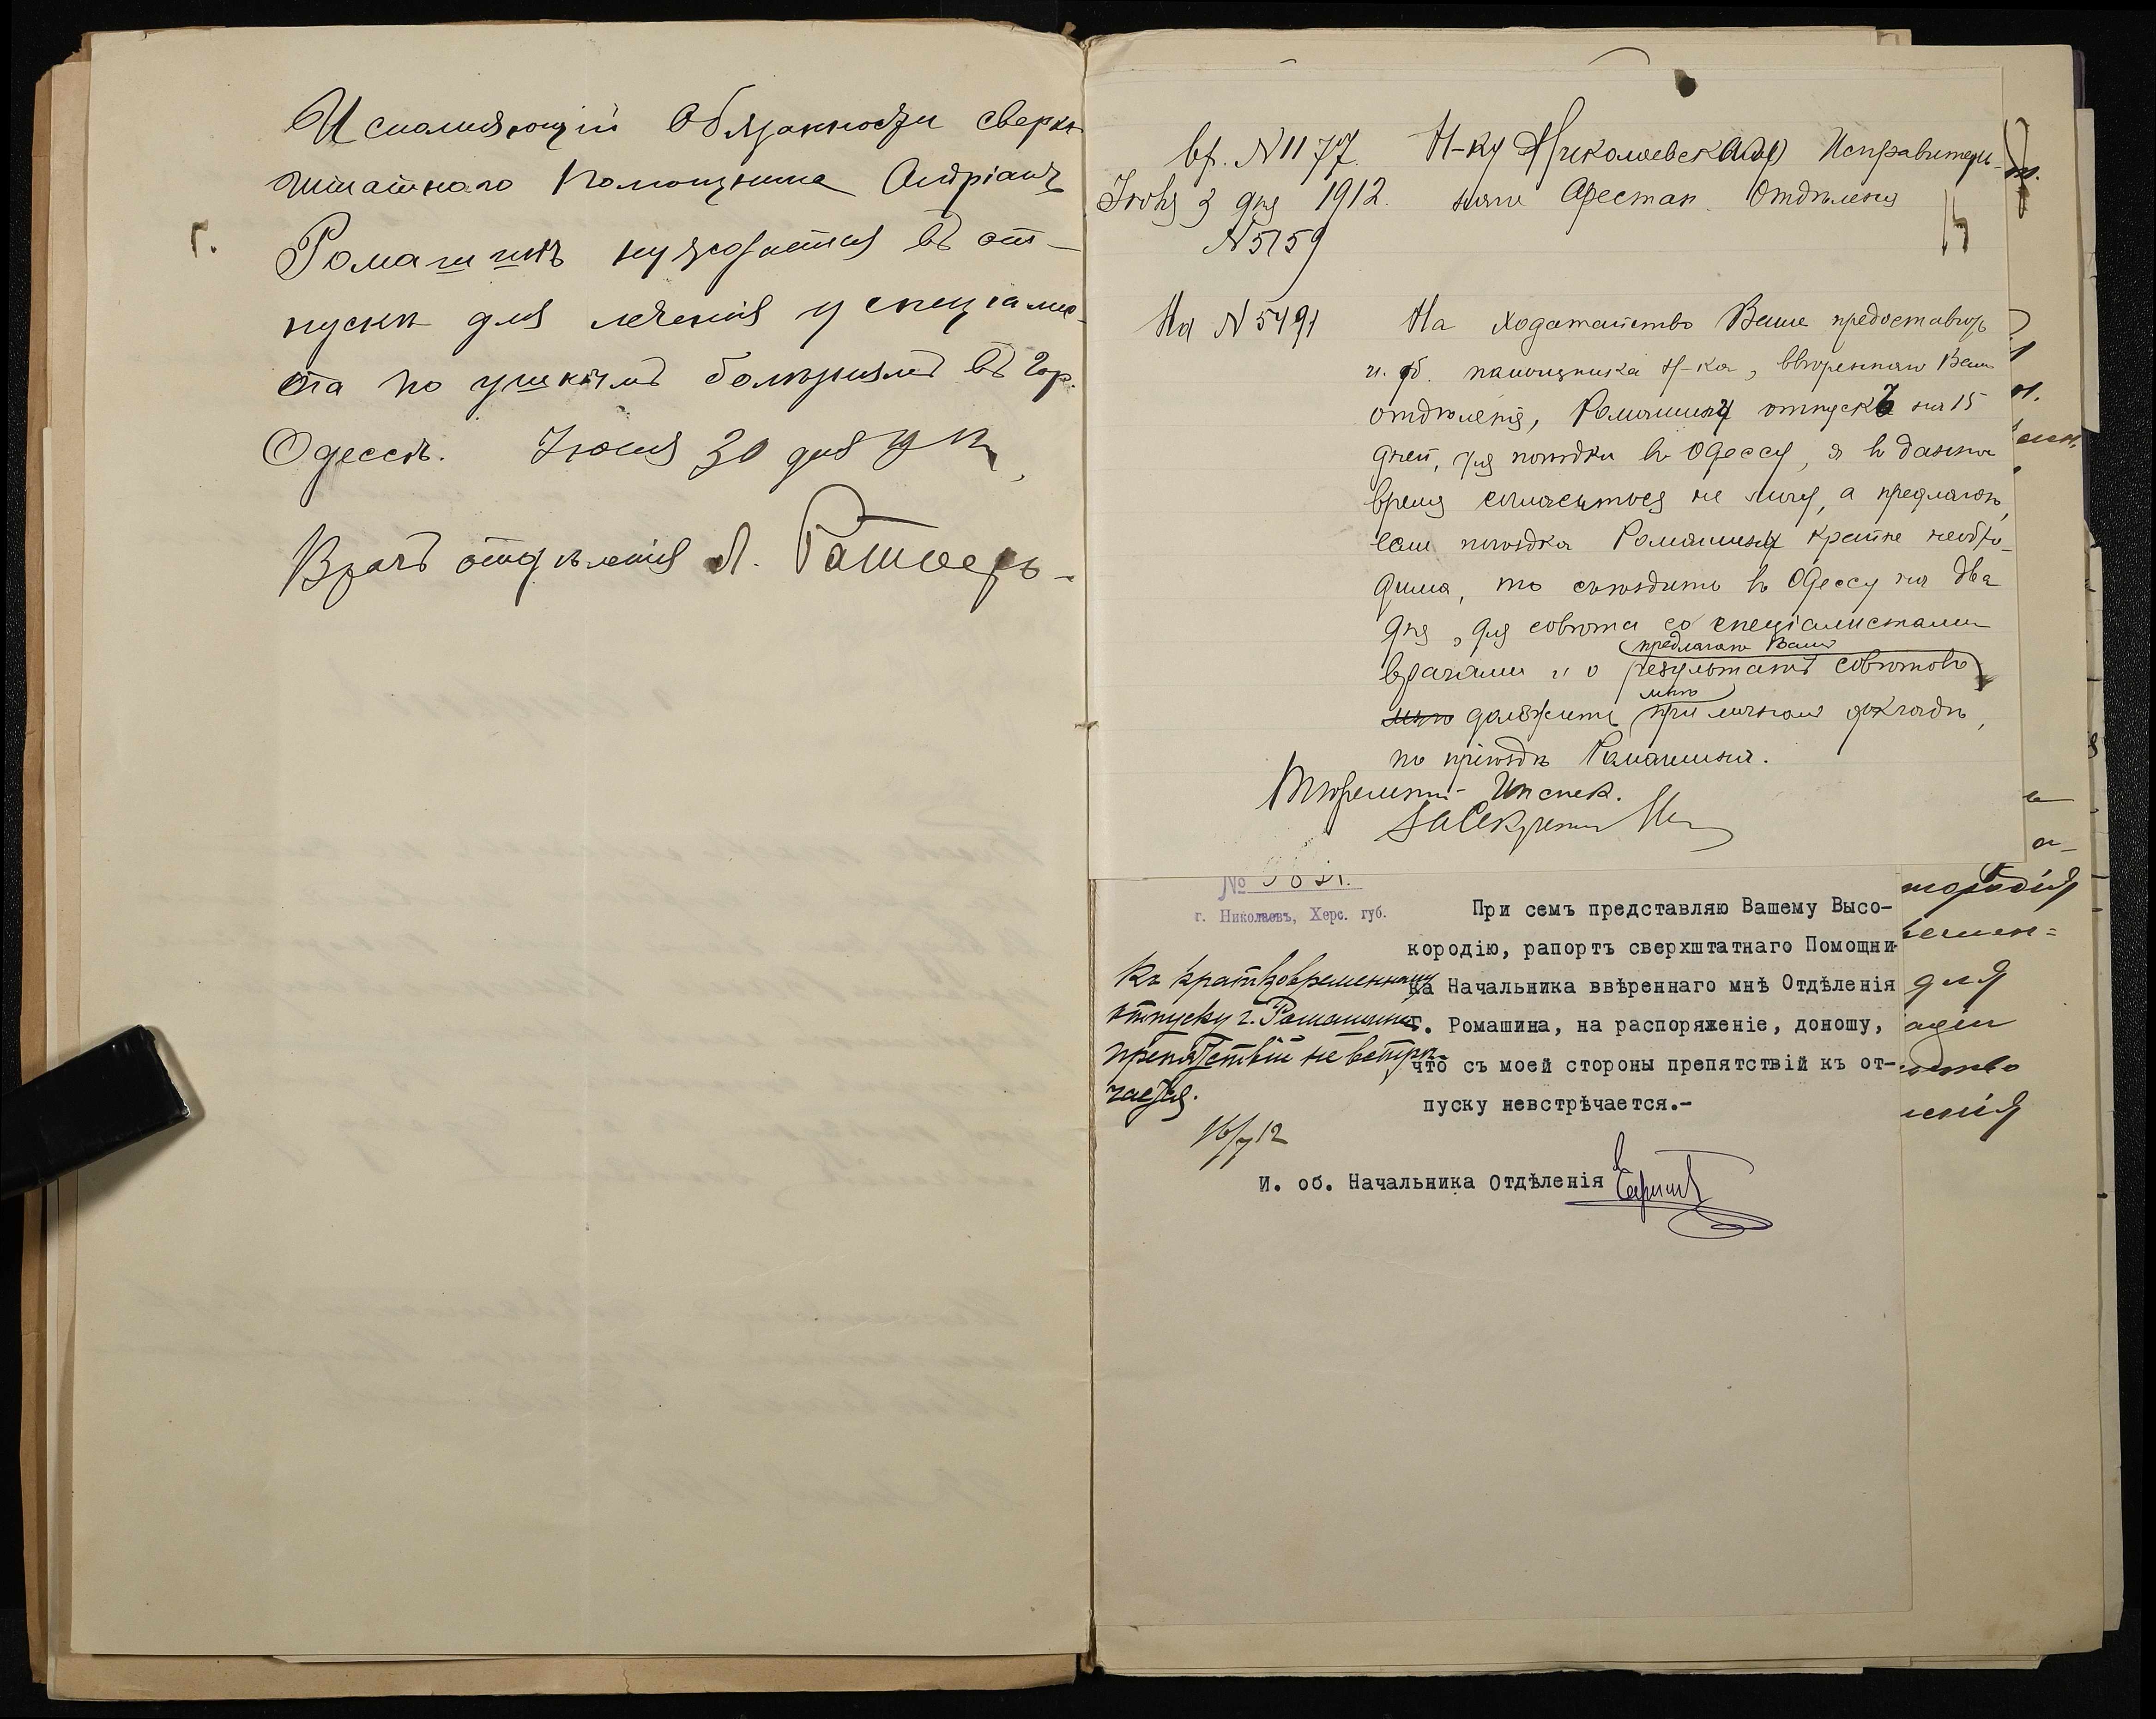 Исполняющій Обязанности сверхъ
штатнаго Помощника Андріанъ
г.
Ромашинъ нуждается въ от-
пускѣ для леченія у спеціалис-
та по ушнымъ болѣзнямъ въ гор.
Одессѣ. Іюня 30 дня
Врачъ отдѣленія
вх. N 1177.
Іюля 3 дня 1912.
N 5159
На N 5491
Н-ку Николаевскаго Исправитель-
наго Арестан. Отдѣленія
На ходатайство Ваше предоставить
и. об. помощника Н-ка, ввѣреннаго Вамъ
отдѣленія, Ромашину отпускъ на 15
дней, для поѣздки въ Одессу, я въ данное
время согласиться не могу, а предлагаю,
если поѣздка Ромашину крайне необхо-
дима, то съѣздить въ Одессу на два
дня, для совѣта со спеціалистами
предлагаю Вамъ
врачами и о результатѣ совѣтовъ
мнѣ
мнѣ доложить при личномъ докладѣ,
по пріѣздѣ Ромашина.
Тюремный Инспек.
За Секретаря
№
г. Николаевъ, Херс. губ.
При семъ представляю Вашему Высо-
кородію, рапортъ сверхштатнаго Помощни-
ка Начальника ввѣреннаго мнѣ Отдѣленія
г. Ромашина, на распоряженіе, доношу,
что съ моей стороны препятствій къ от-
пуску невстрѣчается.-
Къ кратковременному
отпуску г. Ромашина
препятствій не встрѣ-
чается.
16/7 12
И. об. Начальника Отдѣленія